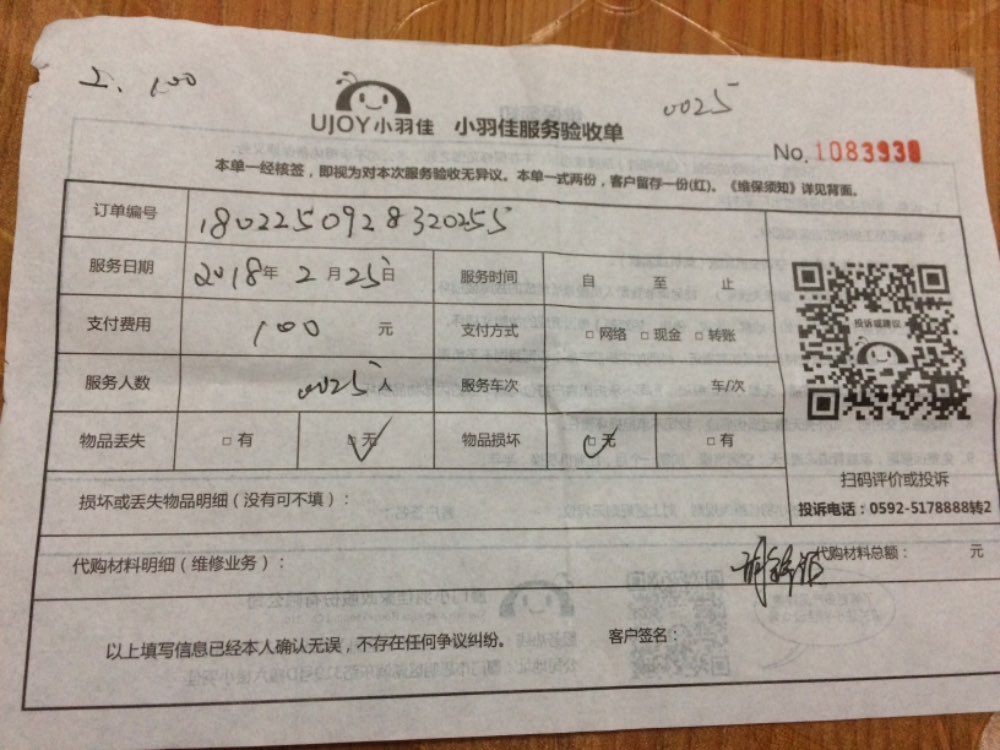 工、100
0025
UJOY小羽佳 小羽佳服务验收单
No. 1083930
本单一经核签，即视为对本次服务验收无异议。本单一式两份，客户留存一份(红)。《维保须知》详见背面。
订单编号 1802250928320255
服务日期 2018年 2月25日 服务时间 自 至 止
支付费用 100 元 支付方式 □网络 □现金 □转账
投诉或建议
服务人数 0025人 服务车次 车/次
物品丢失 □有 □无 ✓ 物品损坏 □无 ✓ □有
扫码评价或投诉
损坏或丢失物品明细（没有可不填）：
投诉电话：0592-5178888转2
代购材料明细（维修业务）： 代购材料总额： 元
以上填写信息已经本人确认无误，不存在任何争议纠纷。 客户签名：